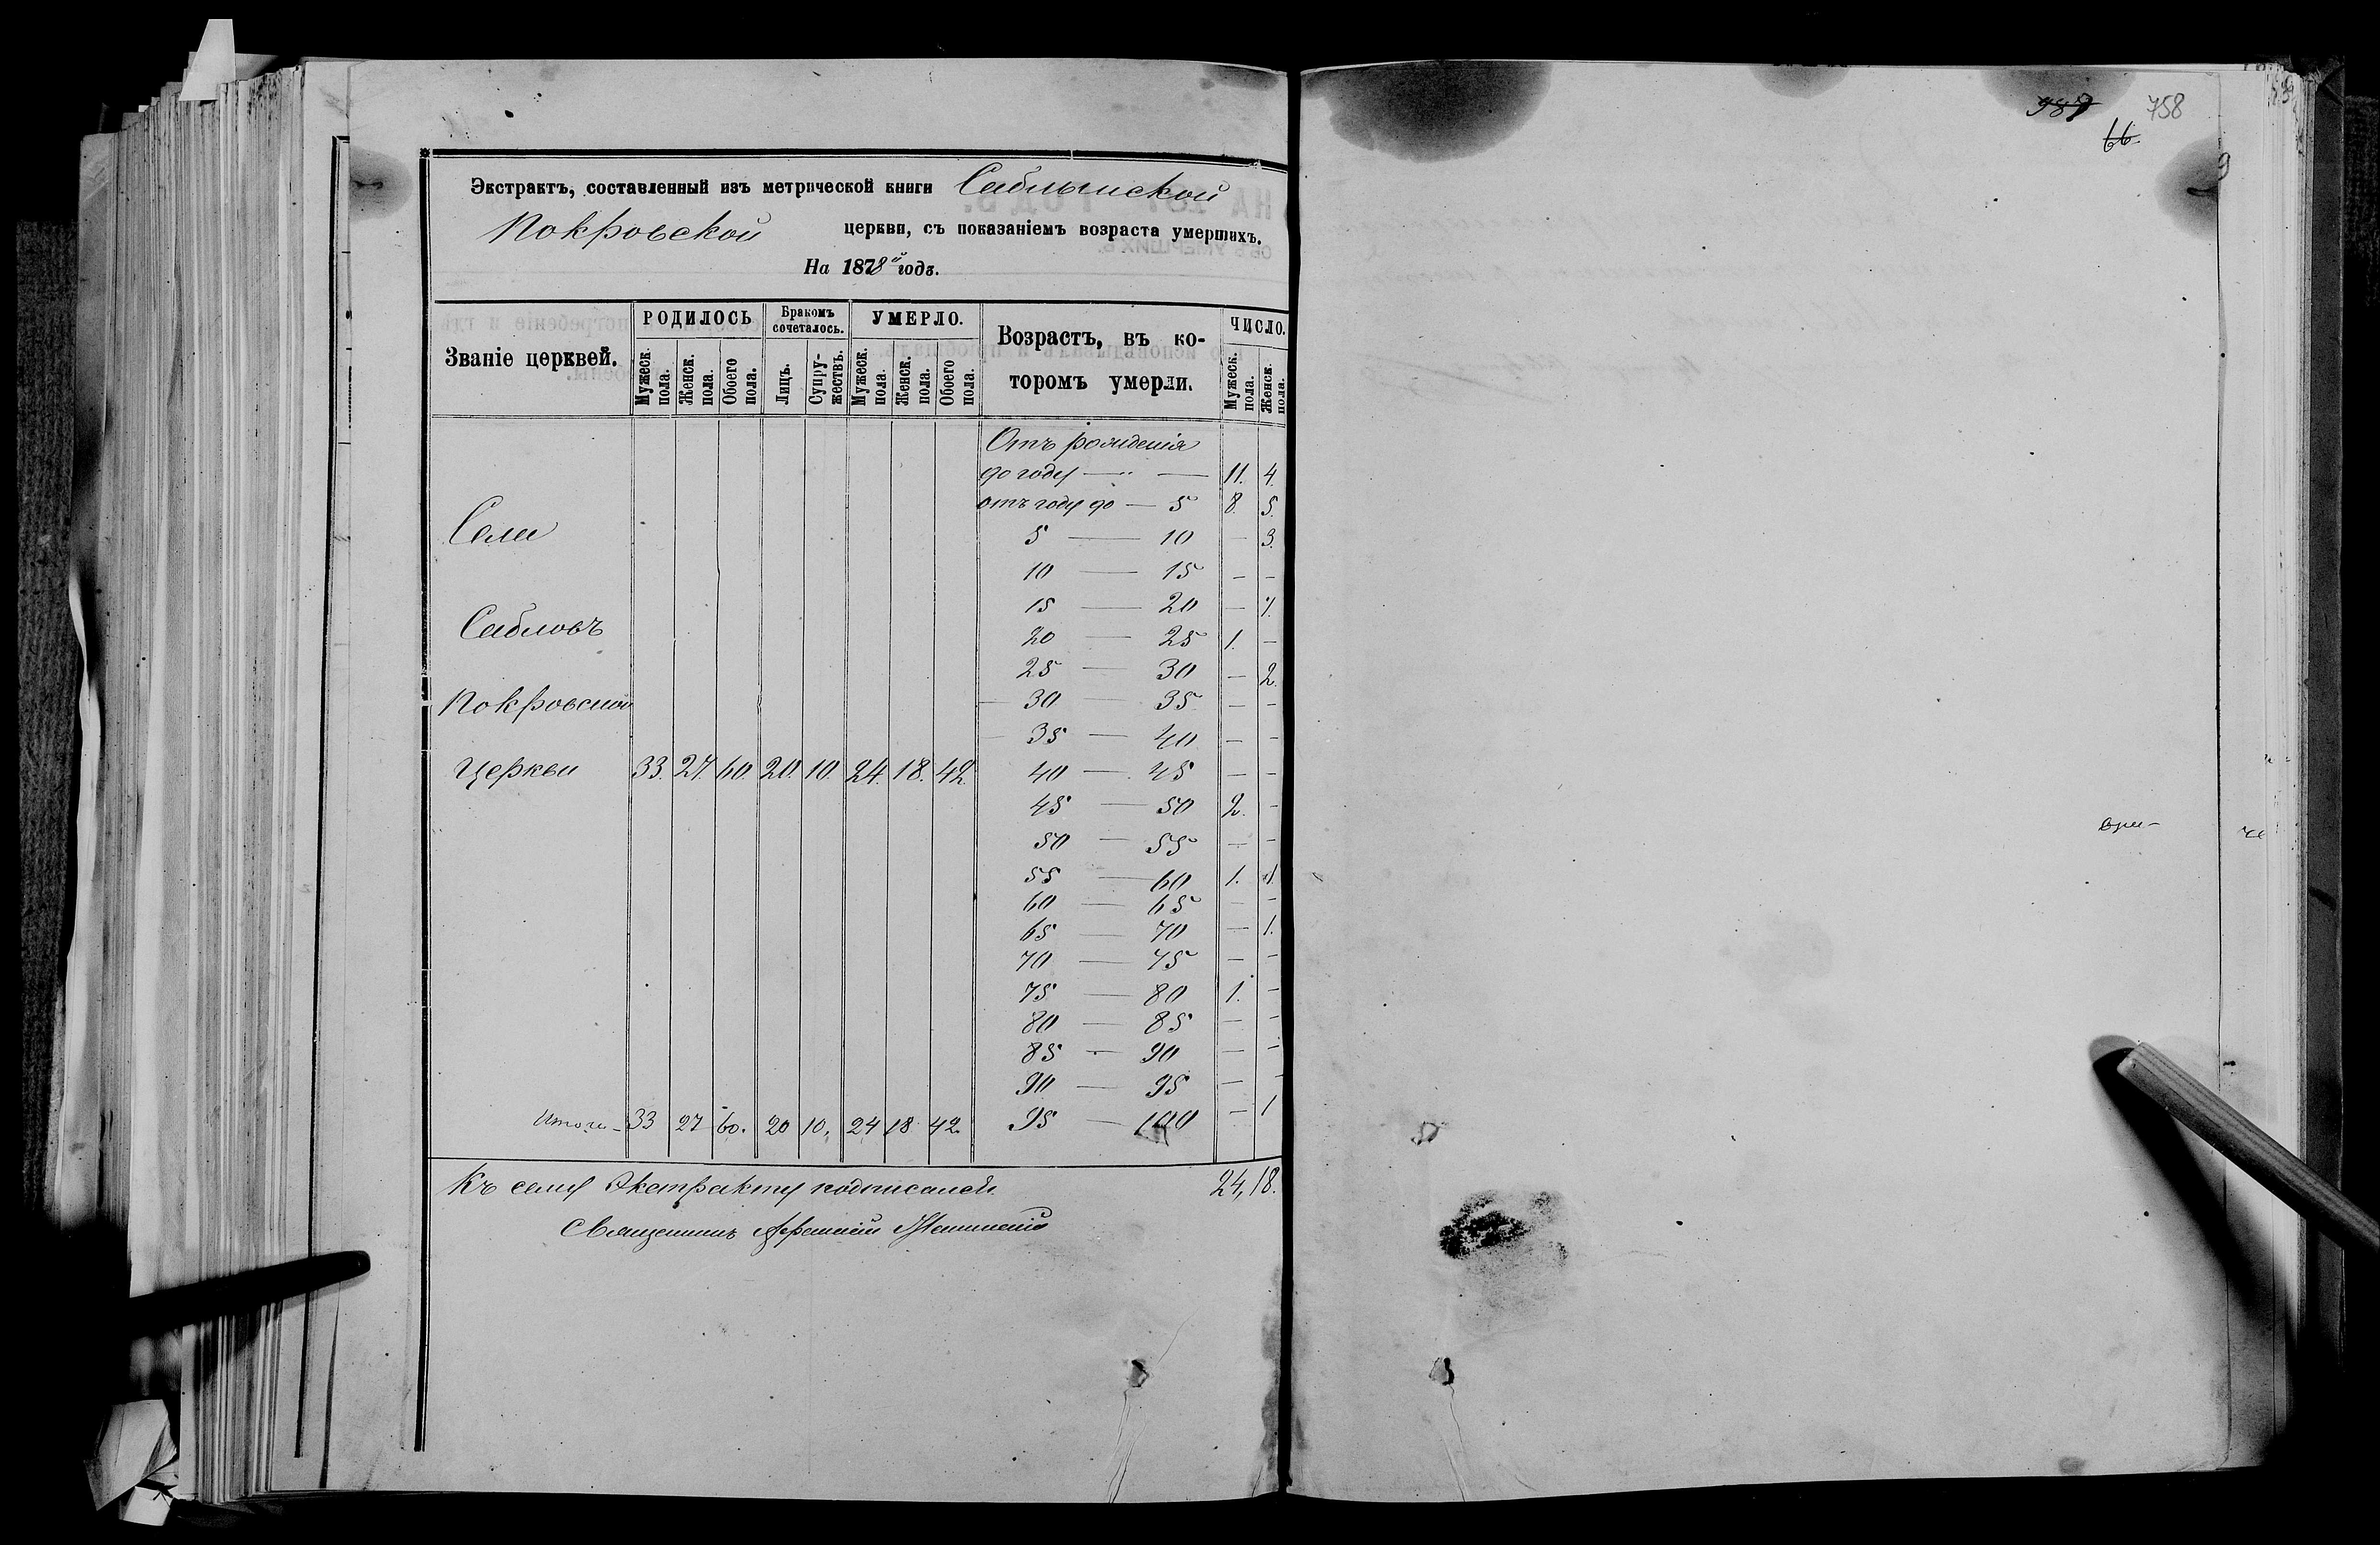 Экстрактъ, составленный изъ метрической книги Саблынской
Покровской церкви, съ показаніемъ возраста умершихъ.
На 1878й годъ.
Званіе церквей. РОДИЛОСЬ Бракомъ сочеталось. УМЕРЛО. Возрастъ, въ ко-
торомъ умерли. ЧИСЛО.
Мужеск. пола. Женск. пола. Обоего пола. Лицъ. Супру-жествъ. Мужеск. пола. Женск. пола. Обоего пола. Мужеск. пола. Женск. пола.
Отъ рожденія
до году — " — 11. 4.
отъ году до — 5 8. 5.
Села
5 — 10 — 3.
10 — 15 — —
15 — 20 — 1.
Сабловъ
20 — 25 1. —
25 — 30 — 2.
Покровской
30 — 35 — —
35 — 40 — —
Церкви 33. 27. 60. 20. 10. 24. 18. 42
40 — 45 — —
45 — 50 2. —
50 — 55 — —
55 — 60 1. 1.
60 — 65 — —
65 — 70 — 1.
70 — 75 — —
75 — 80 1. —
80 — 85 — —
85 — 90 — —
90 — 95 — —
Итого — 33 27 60. 20 10. 24 18 42.
95 — 100 — 1
24, 18.
Къ сему Экстракту подписался
Священникъ
987 758
66